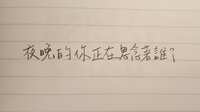 夜晚的你正在思念著誰?